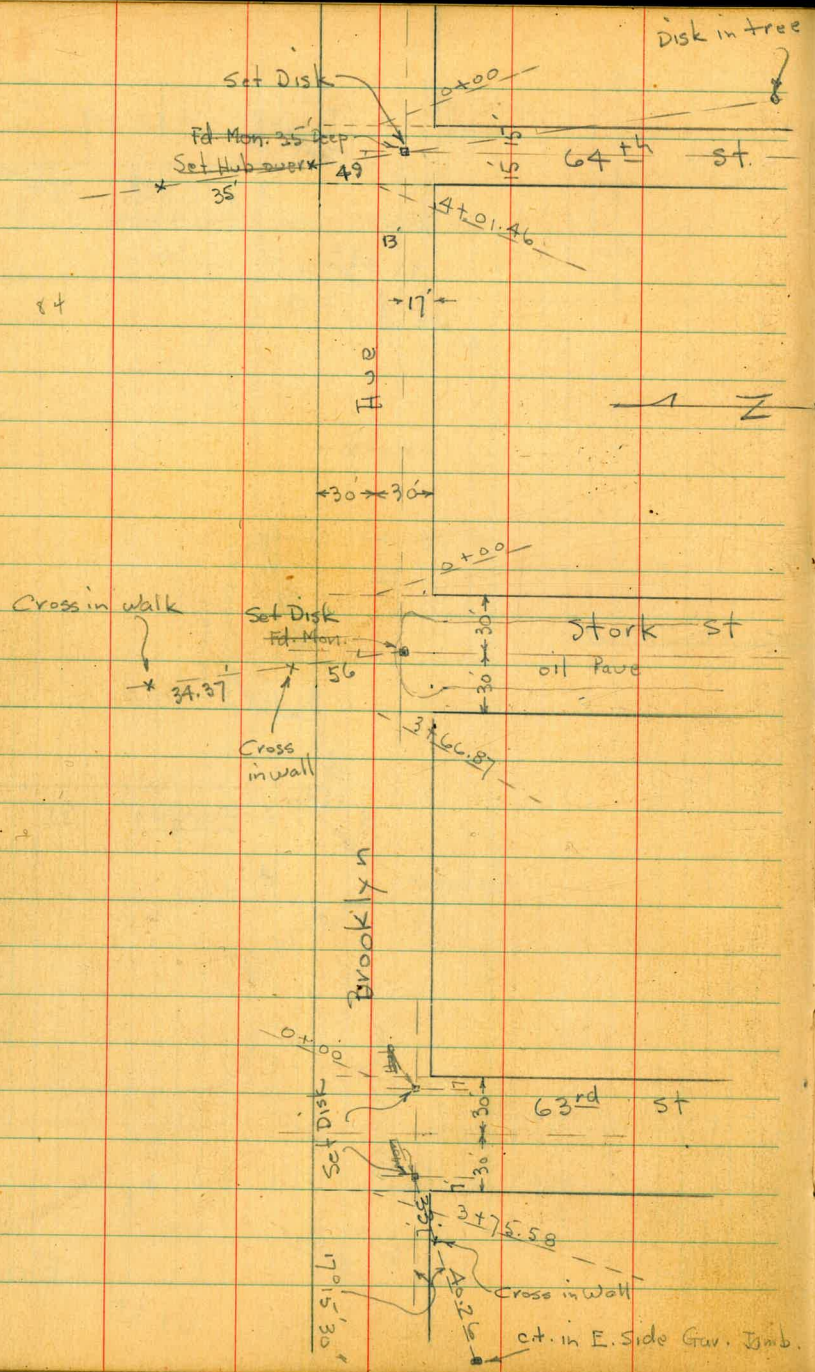 Disk in tree
Set Disk
0+00
Fd. Mon. 35' Deep
Set Hub over
49
35'
15' 15'
64th St.
4+01.46
13'
84
17'
30' 30'
0+00
Cross in walk
Set Disk
Fd. Mon.
56
34.37'
30' 30'
Stork St
oil Pave
Cross
in wall
3+66.87
Brooklyn
0+00
Set Disk
7'
30' 30'
63rd St
7'
3+75.58
Cross in Wall
40.26
17° 15' 30"
N